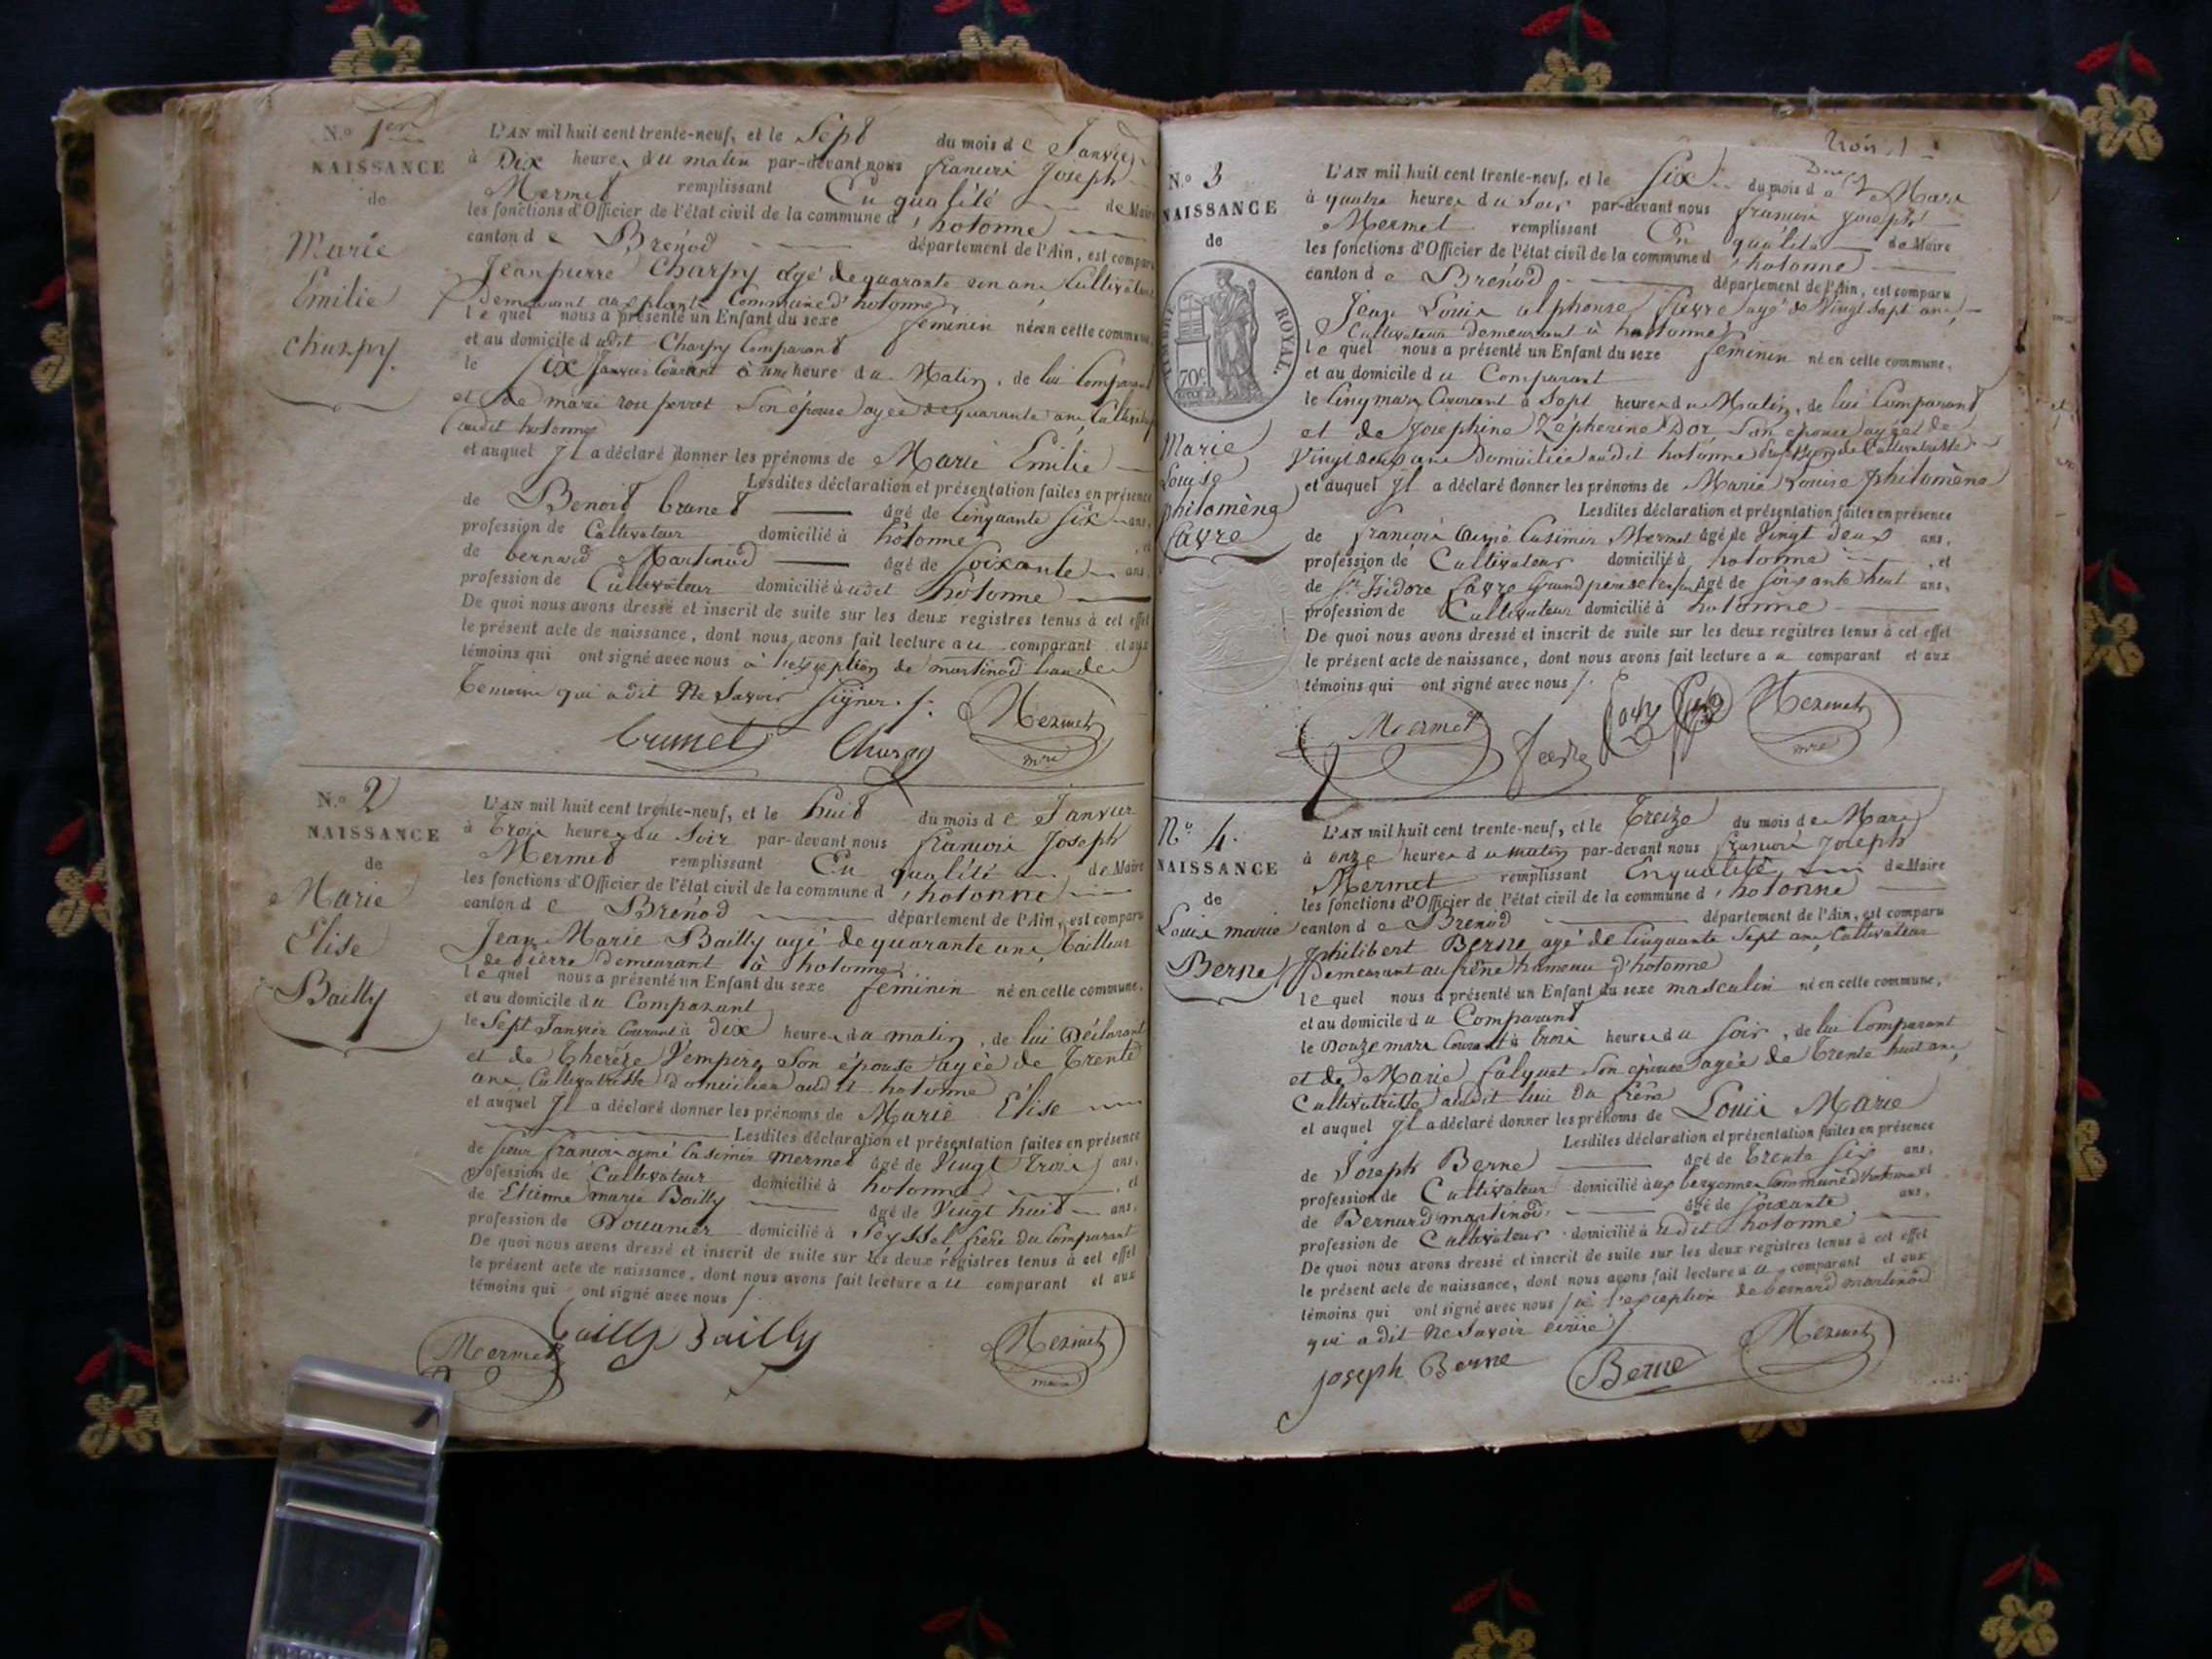 N.o 1er
NAISSANCE
de
Marie
Emilie
Charpy.
L'AN mil huit cent trente-neuf, et le Sept du mois de Janvier
à Dix heures du matin par-devant nous françois Joseph
Mermet remplissant En qualité de Maire
les fonctions d'Officier de l'état civil de la commune d'hotonne
canton de Brénod département de l'Ain, est comparu
Jean pierre Charpy agé de quarante un ans Cultivateur
Demeurant aux plans Commune d'hotonne
lequel nous a présenté un Enfant du sexe feminin né en cette commune,
et au domicile dudit Charpy Comparant
le Six Janvier Courant à une heure du Matin, de lui Comparant
et de marie rose perret Son épouse agée de quarante ans Cultivatrice
audit hotonne
et auquel Il a déclaré donner les prénoms de Marie Emilie
Lesdites déclaration et présentation faites en présence
de Benoit brunet âgé de Cinquante Six ans,
profession de Cultivateur domicilié à hotonne, et
de bernard Martinod âgé de Soixante ans,
profession de Cultivateur domicilié audit hotonne
De quoi nous avons dressé et inscrit de suite sur les deux registres tenus à cet effet
le présent acte de naissance, dont nous avons fait lecture au comparant et aux
témoins qui ont signé avec nous à l'exception de martinod
Temoin qui a dit Ne Savoir Signer ./.
brunet Charpy Mermet
mre
N.o 2
NAISSANCE
de
Marie
Elise
Bailly
L'AN mil huit cent trente-neuf, et le huit du mois de Janvier
à Trois heures du Soir par-devant nous françois Joseph
Mermet remplissant En qualité de Maire
les fonctions d'Officier de l'état civil de la commune d'hotonne
canton de Brénod département de l'Ain, est comparu
Jean Marie Bailly agé de quarante ans, Tailleur
de Pierre demeurant à hotonne
lequel nous a présenté un Enfant du sexe feminin né en cette commune,
et au domicile du Comparant
le Sept Janvier Courant à dix heures du matin, de lui Déclarant
et de Thereze Vempire Son épouse agée de Trente
ans, Cultivatrisse domiciliée audit hotonne
et auquel Il a déclaré donner les prénoms de Marie Elise
Lesdites déclaration et présentation faites en présence
de Sieur françois aimé Casimir mermet âgé de Vingt Trois ans,
profession de Cultivateur domicilié à hotonne, et
de Etienne marie Bailly âgé de Vingt huit ans,
profession de Douanier domicilié à Seyssel frère du Comparant
De quoi nous avons dressé et inscrit de suite sur les deux régistres tenus à cet effet
le présent acte de naissance, dont nous avons fait lecture au comparant et aux
témoins qui ont signé avec nous ./.
Mermet Bailly Bailly Mermet
maire
N.o 3
NAISSANCE
de
TIMBRE ROYAL.
70c
Marie
Louise
philomène
favre
L'AN mil huit cent trente-neuf, et le Six du mois de Mars
à quatre heures du Soir par-devant nous françois joseph
Mermet remplissant En qualité de Maire
les fonctions d'Officier de l'état civil de la commune d'hotonne
canton de Brénod département de l'Ain, est comparu
Jean Louis alphonse favre agé de Vingt Sept ans,
Cultivateur demeurant à hotonne
lequel nous a présenté un Enfant du sexe feminin né en cette commune,
et au domicile du Comparant
le Cinq mars Courant à Sept heures du Matin, de lui Comparant
et de Josephine Zépherine Dor Son epouse agée de
Vingt deux ans domiciliée audit hotonne profession de Cultivatrisse
et auquel Il a déclaré donner les prénoms de Marie Louise philomène
Lesdites déclaration et présentation faites en présence
de françois Aimé Casimir Mermet âgé de Vingt deux ans,
profession de Cultivateur domicilié à hotonne, et
de Sr. Isidore favre Grand père de l'enfant âgé de Soixante huit ans,
profession de Cultivateur domicilié à hotonne
De quoi nous avons dressé et inscrit de suite sur les deux registres tenus à cet effet
le présent acte de naissance, dont nous avons fait lecture au comparant et aux
témoins qui ont signé avec nous ./.
Mermet favre Mermet
mre
N.o 4.
NAISSANCE
de
Louis marie
Berne
L'AN mil huit cent trente-neuf, et le Treize du mois de Mars
à onze heures du matin par-devant nous françois Joseph
Mermet remplissant En qualité de Maire
les fonctions d'Officier de l'état civil de la commune d'hotonne
canton de Brenod département de l'Ain, est comparu
philibert Berne agé de Cinquante Sept ans, Cultivateur
Demeurant au frêne hameau d'hotonne
lequel nous a présenté un Enfant du sexe masculin né en cette commune,
et au domicile du Comparant
le Douze mars Courant à trois heures du Soir, de lui Comparant
et de Marie falquet Son épouse agée de Trente huit ans,
Cultivatrisse audit lieu Du frêne
et auquel Il a déclaré donner les prénoms de Louis Marie
Lesdites déclaration et présentation faites en présence
de Joseph Berne âgé de Trente Six ans,
profession de Cultivateur domicilié aux bergonnes Commune d'hotonne et
de Bernard martinod âgé de Soixante ans,
profession de Cultivateur domicilié audit hotonne
De quoi nous avons dressé et inscrit de suite sur les deux registres tenus à cet effet
le présent acte de naissance, dont nous avons fait lecture au comparant et aux
témoins qui ont signé avec nous à l'exception de bernard martinod
qui a dit Ne Savoir écrire ./.
joseph Berne Berne Mermet